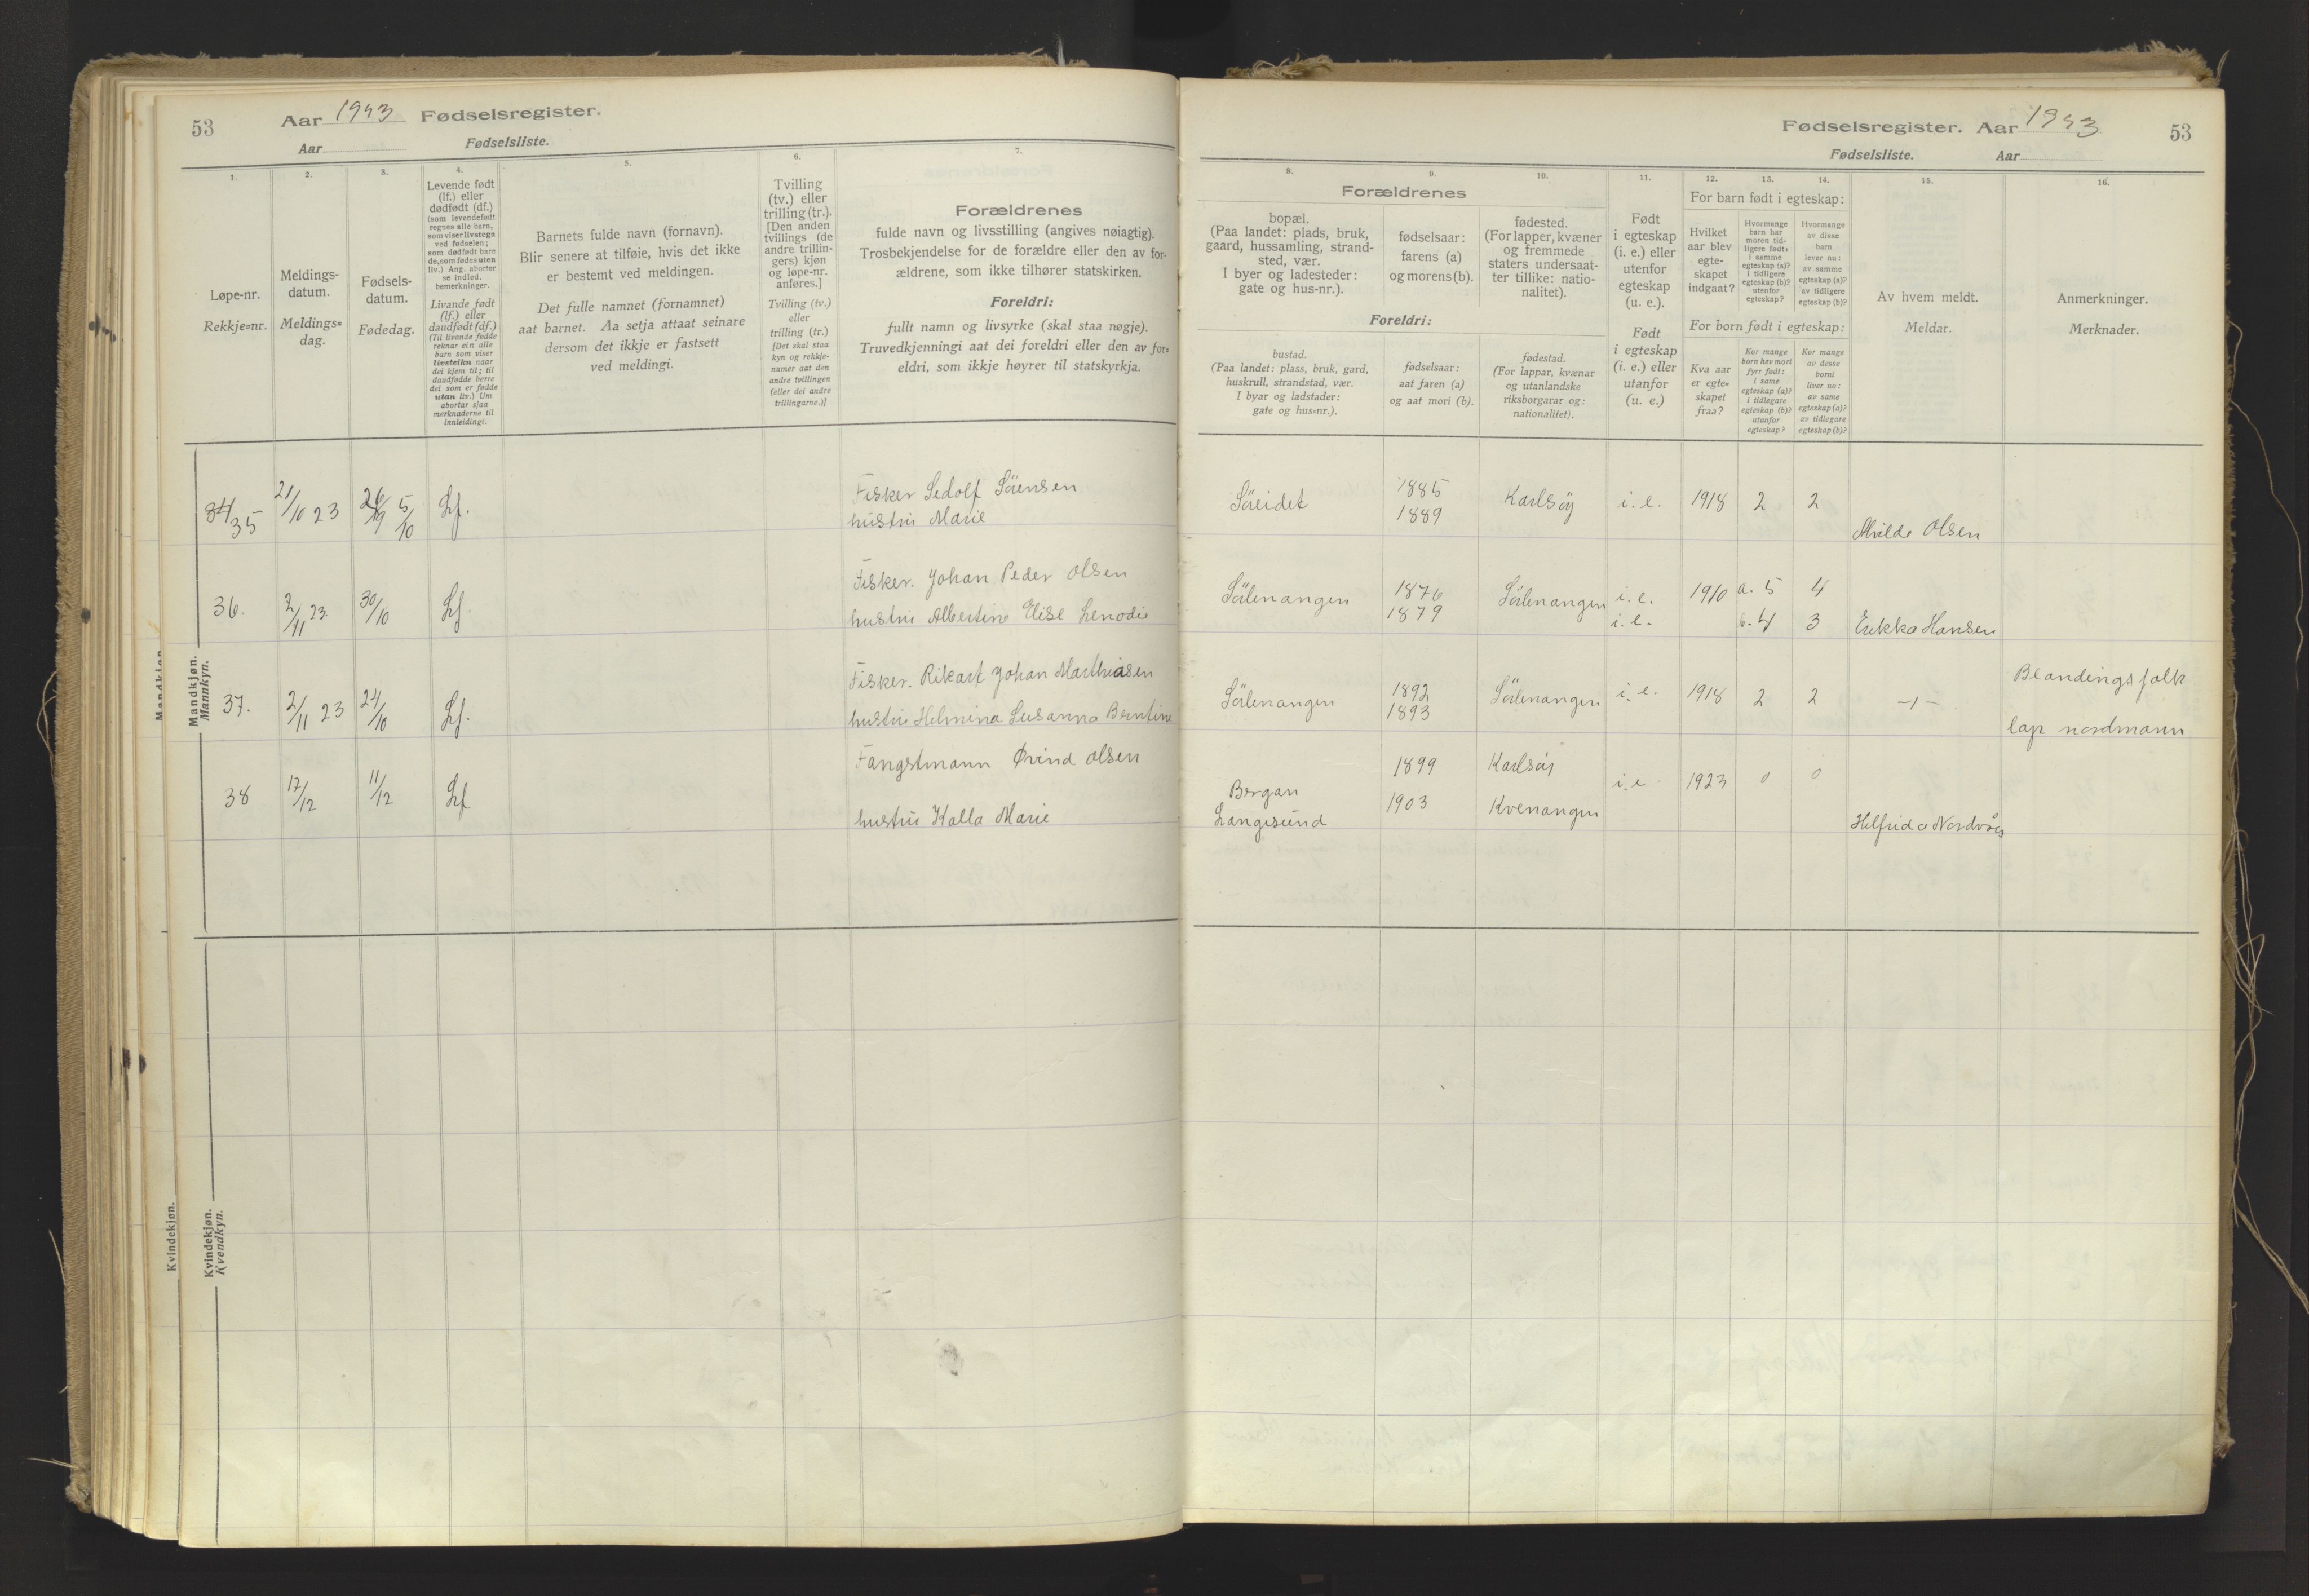 53
Aar 1923 Fødselsregister.
Aar
Fødselsliste.
1.
2.
3.
4.
5.
6.
7.
Løpe-nr.
Rekkje=nr.
Meldings-
datum.
Meldings=
dag.
Fødsels-
datum.
Fødedag.
Levende født
(lf.) eller
dødfødt (df.)
(som levendefødt
regnes alle barn,
som viser livstegn
ved fødselen;
som dødfødt barn
de, som fødes uten
liv.) Ang. aborter
se indled.
bemerkninger.
Livande født
(lf.) eller
daudfødt (df.)
(Til livande fødde
reknar ein alle
barn som viser
livsteikn naar
dei kjem til; til
daudfødde berre
dei som er fødde
utan liv.) Um
abortar sjaa
merknaderne til
innleidingi.
Barnets fulde navn (fornavn).
Blir senere at tilføie, hvis det ikke
er bestemt ved meldingen.
Det fulle namnet (fornamnet)
aat barnet. Aa setja attaat seinare
dersom det ikkje er fastsett
ved meldingi.
Tvilling
(tv.) eller
trilling (tr.).
[Den anden
tvillings (de
andre trillin-
gers) kjøn
og løpe-nr.
anføres.]
Tvilling (tv.)
eller
trilling (tr.)
[Det skal staa
kyn og rekkje-
numer aat den
andre tvillingen
(eller dei andre
trillingarne.)]
Forældrenes
fulde navn og livsstilling (angives nøiagtig).
Trosbekjendelse for de forældre eller den av for-
ældrene, som ikke tilhører statskirken.
Foreldri:
fullt namn og livsyrke (skal staa nøgje).
Truvedkjenningi aat dei foreldri eller den av for=
eldri, som ikkje høyrer til statskyrkja.
Mandkjøn.
Mannkyn.
34 35
21/10 23
26/9 5/10
Lf.
Fisker Sedolf Sörensen
hustru Marie
36.
2/11 23.
30/10
Lf.
Fisker. Johan Peder Olsen
hustru Albertine Elise Lenodie
37.
2/11 23
24/10
Lf.
Fisker. Rikart Johan Mathiasen
hustru Helmina Susanna Berntine
38
17/12
11/12
Lf
Fangstmann Øvind Olsen
hustru Kalla Marie
Kvindekjøn.
Kvendkyn.
Mandkjøn
Kvindekjøn.
Fødselsregister. Aar 1923
53
Fødselsliste. Aar
8.
9.
10.
11.
12.
13.
14.
15.
16.
Forældrenes
bopæl.
(Paa landet: plads, bruk,
gaard, hussamling, strand-
sted, vær.
I byer og ladesteder:
gate og hus-nr.).
fødselsaar:
farens (a)
og morens (b).
fødested.
(For lapper, kvæner
og fremmede
staters undersaat-
ter tillike: natio-
nalitet).
Foreldri:
bustad.
(Paa landet: plass, bruk, gard,
huskrull, strandstad, vær.
I byar og ladstader:
gate og hus=nr.).
fødselsaar:
aat faren (a)
og aat mori (b).
fødestad.
(For lappar, kvænar
og utanlandske
riksborgarar og:
nationalitet).
Født
i egteskap
(i. e.) eller
utenfor
egteskap
(u. e.).
Født
i egteskap
(i. e.) eller
utanfor
(u. e.)
For barn født i egteskap:
Hvilket
aar blev
egte-
skapet
indgaat?
Hvormange
barn har
moren tid-
ligere født:
i samme
egteskap (a)?
i tidligere
egteskap (b)?
utenfor
egteskap?
Hvormange
av disse
barn
lever nu:
av samme
egteskap (a)?
av tidligere
egteskap (b)?
For born født i egteskap:
Kva aar
er egte=
skapet
fraa?
Kor mange
born hev mori
fyrr født:
i same
egteskap (a)?
i tidlegare
egteskap (b)?
utanfor
egteskap?
Kor mange
av desse
borni
liver no:
av same
egteskap (a)?
av tidlegare
egteskap (b)?
Av hvem meldt.
Meldar.
Anmerkninger.
Merknader.
Söreidet
1885
1889
Karlsöy
i. e.
1918
2
2
Alvilde Olsen
Sörlenangen
1876
1879
Sörlenangen
i. e.
i. e.
1910
a. 5
b. 4
4
3
Erikka Hansen
Sörlenangen
1892
1893
Sörlenangen
i. e.
1918
2
2
-1-
Blandingsfolk
lap nordmann
Bergan
Langesund
1899
1903
Karlsöy
Kvenangen
i. e
1923
0
0
Helfrida Nordvåg